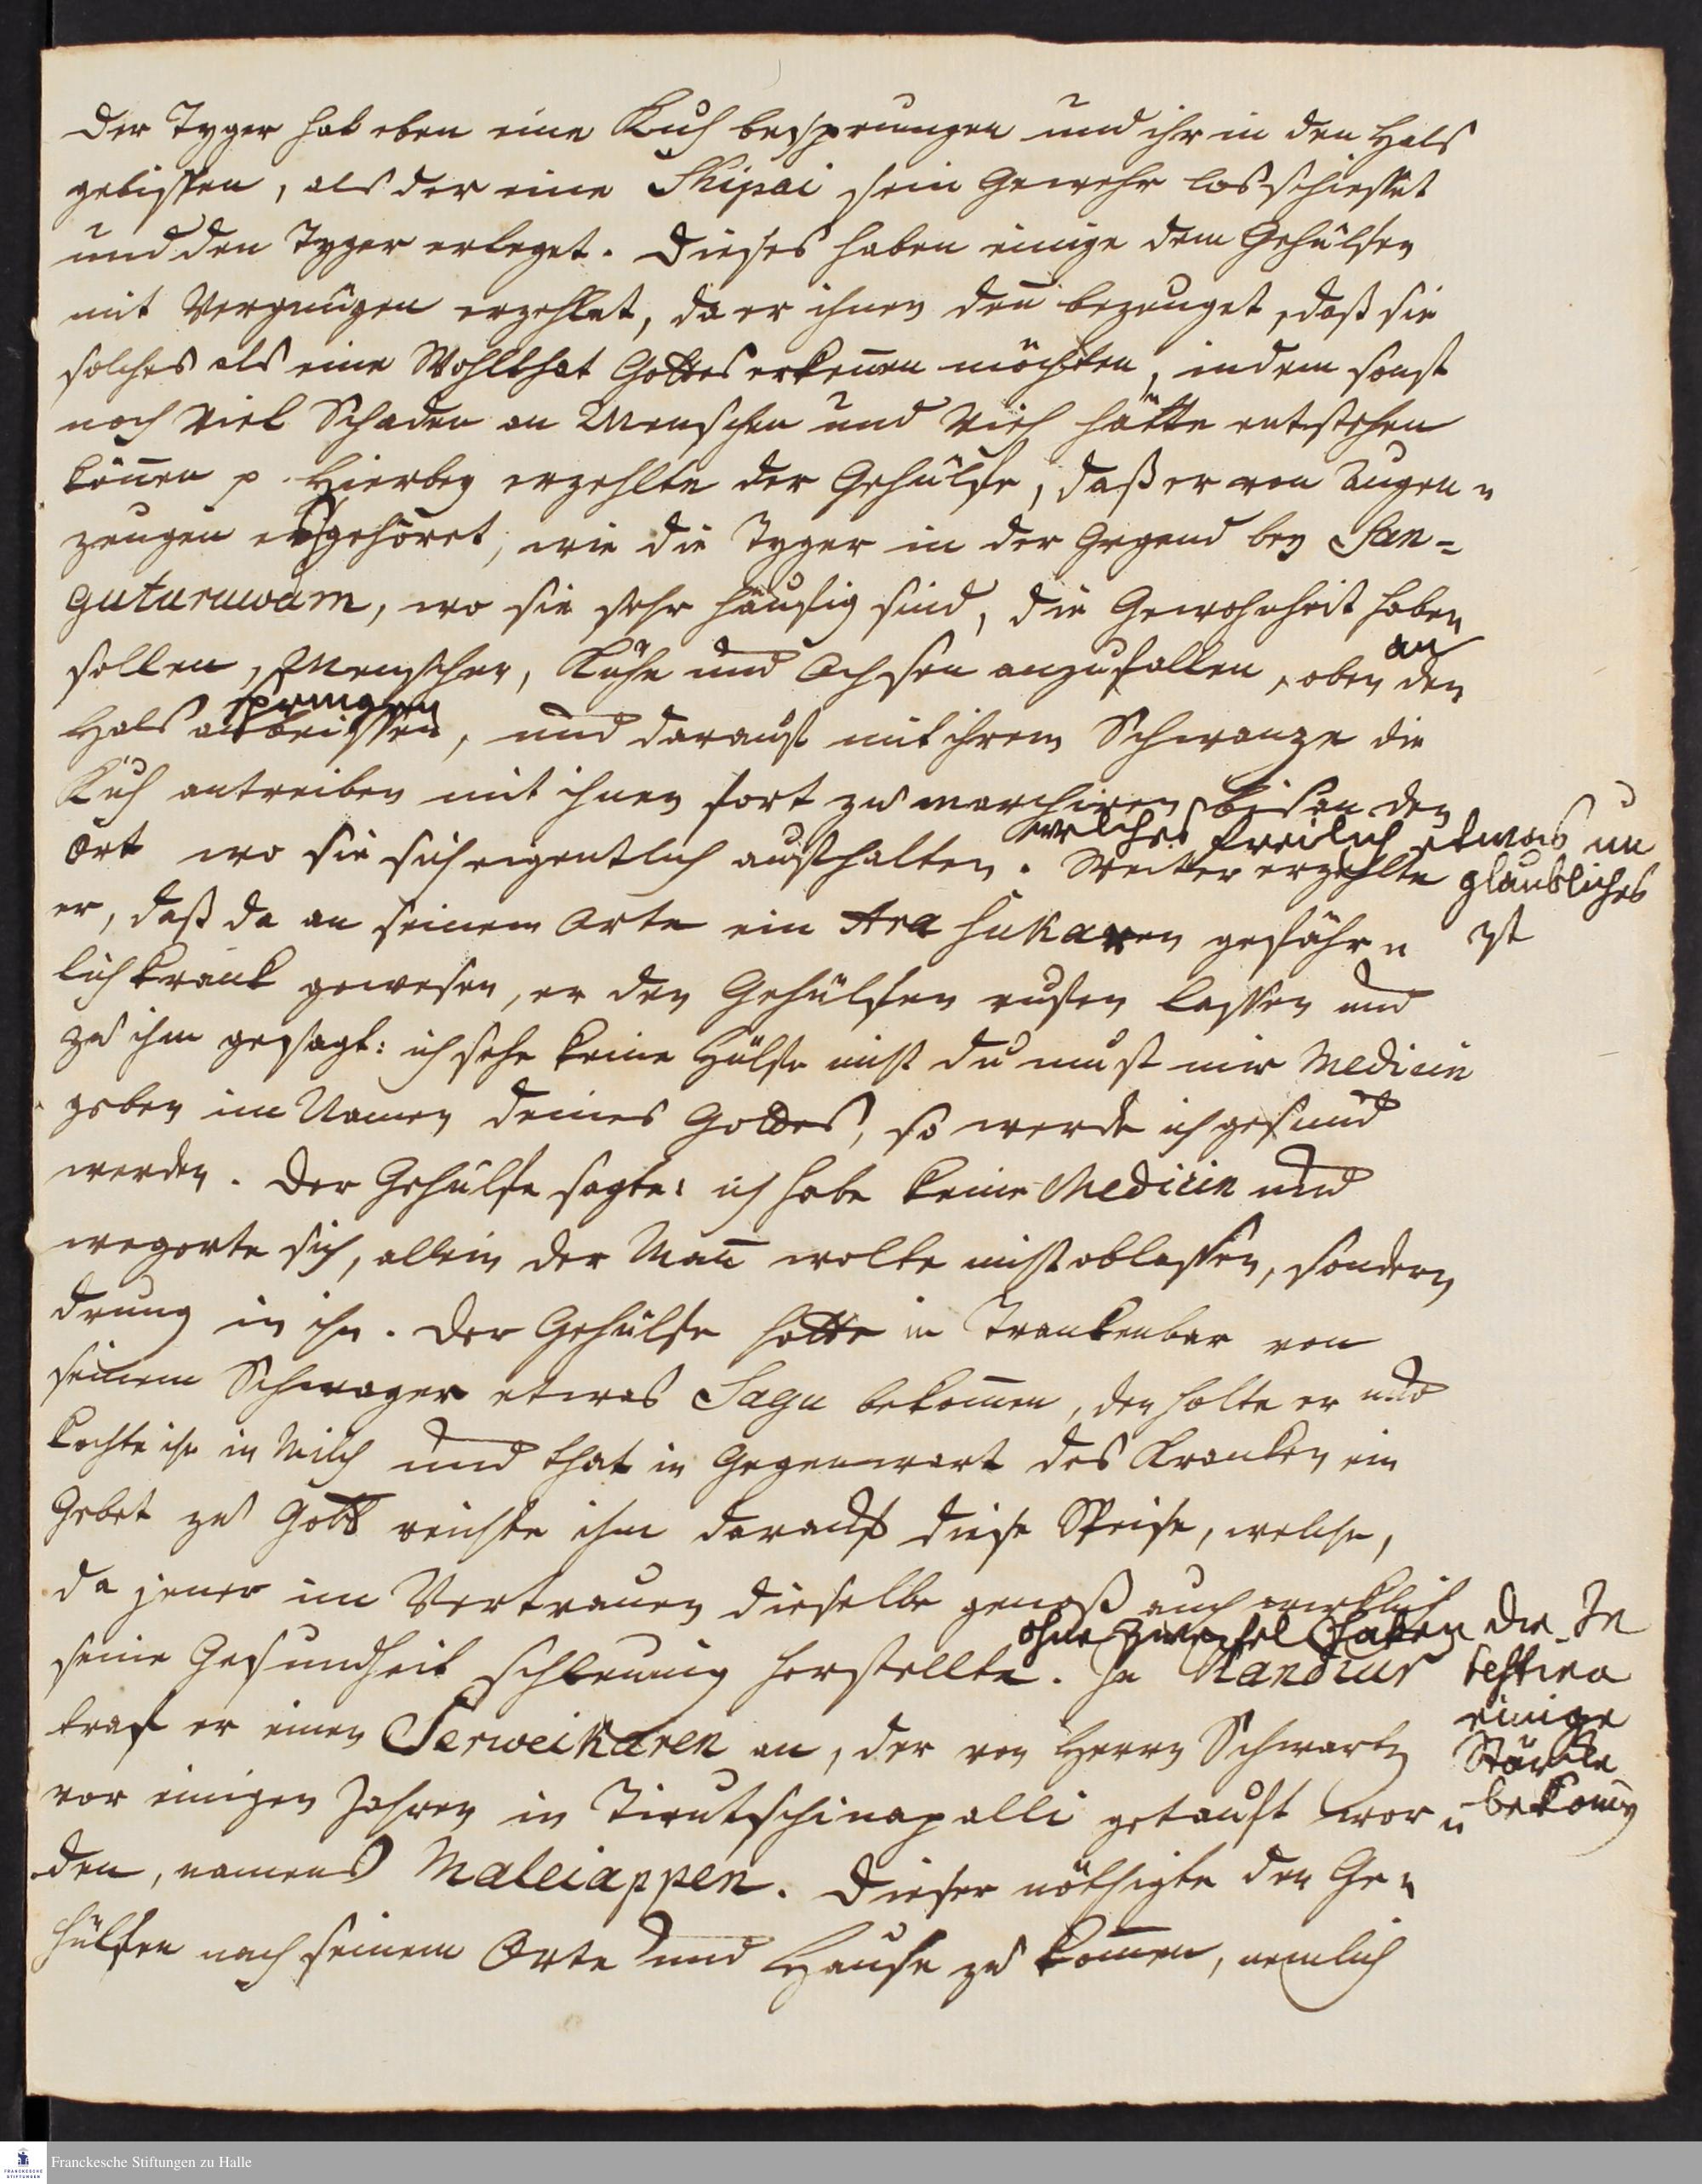 Der Tyger hat eben eine Kuh besprungen und ihr in den Hals
gebissen, als der eine Shipai sein Gewehr losschiesset
und den Tyger erleget. Dieses haben einige dem Gehülfen
mit Vergnügen erzehlet, da er ihnen den̄ bezeuget, daß sie
solches als eine Wohlthat Gottes erkeñen möchten, indem sonst
noch viel Schaden an Menschen und Vieh hätte entstehen
köñen p. Hierbey erzehlte der Gehülfe, daß er von Augen-
zeugen es gehöret, wie die Tyger in der Gegend bey San-
guturuwam, wo sie sehr häufig sind, die Gewohnheit haben
sollen, Menschen, Kühe und Ochsen anzufallen, oben an den
Hals springen
anbeissen, und darauf mit ihrem Schwanze die
Kuh antreiben mit ihnen fort zu marchiren, bis an den
Ort wo sie sich eigentlich aufhalten. welches freilich etwas un
glaubliches
ist
Weiter erzehlte
er, daß da an seinem Orte ein Arasukaren gefähr-
lich kranck gewesen, er den Gehülfen rufen lassen und
zu ihm gesagt: ich sehe keine Hülfe nicht du must mir Medicin
geben im Namen deines Gottes, so werde ich gesund
werden. Der Gehülfe sagte: ich habe keine Medicin und
wegerte sich, allein der Mañ wolte nicht ablassen, sondern
drung in ihn. Der Gehülfe hatte in Trankenbar von
seinem Schwager etwas Sagu bekom̄en, den holte er und
kochte ihn in Milch und that in Gegenwart des Krancken ein
Gebet zu Gott reichte ihm darauf diese Speise, welche,
da jener im Vertrauen dieselbe genoß auch wircklich
seine Gesundheit schleunig herstellte. ohne Zweifel haben die In
testina
einige
Stärcke
bekom̄en
In Nandiur
traf er einen Serweikaren an, der von Herrn Schwartz
vor einigen Jahren in Tirutschinapalli getauft wor-
den, namens Maleiappen. Dieser nöthigte den Ge-
hülfen nach seinem Orte und Hause zu kom̄en, nemlich
Franckesche Stiftungen zu Halle